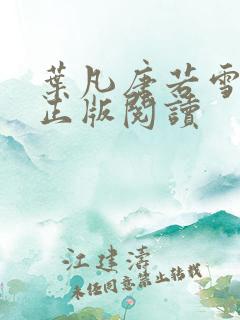 葉凡唐若雪
正版閱讀
江建濤
未任同意禁止轉載